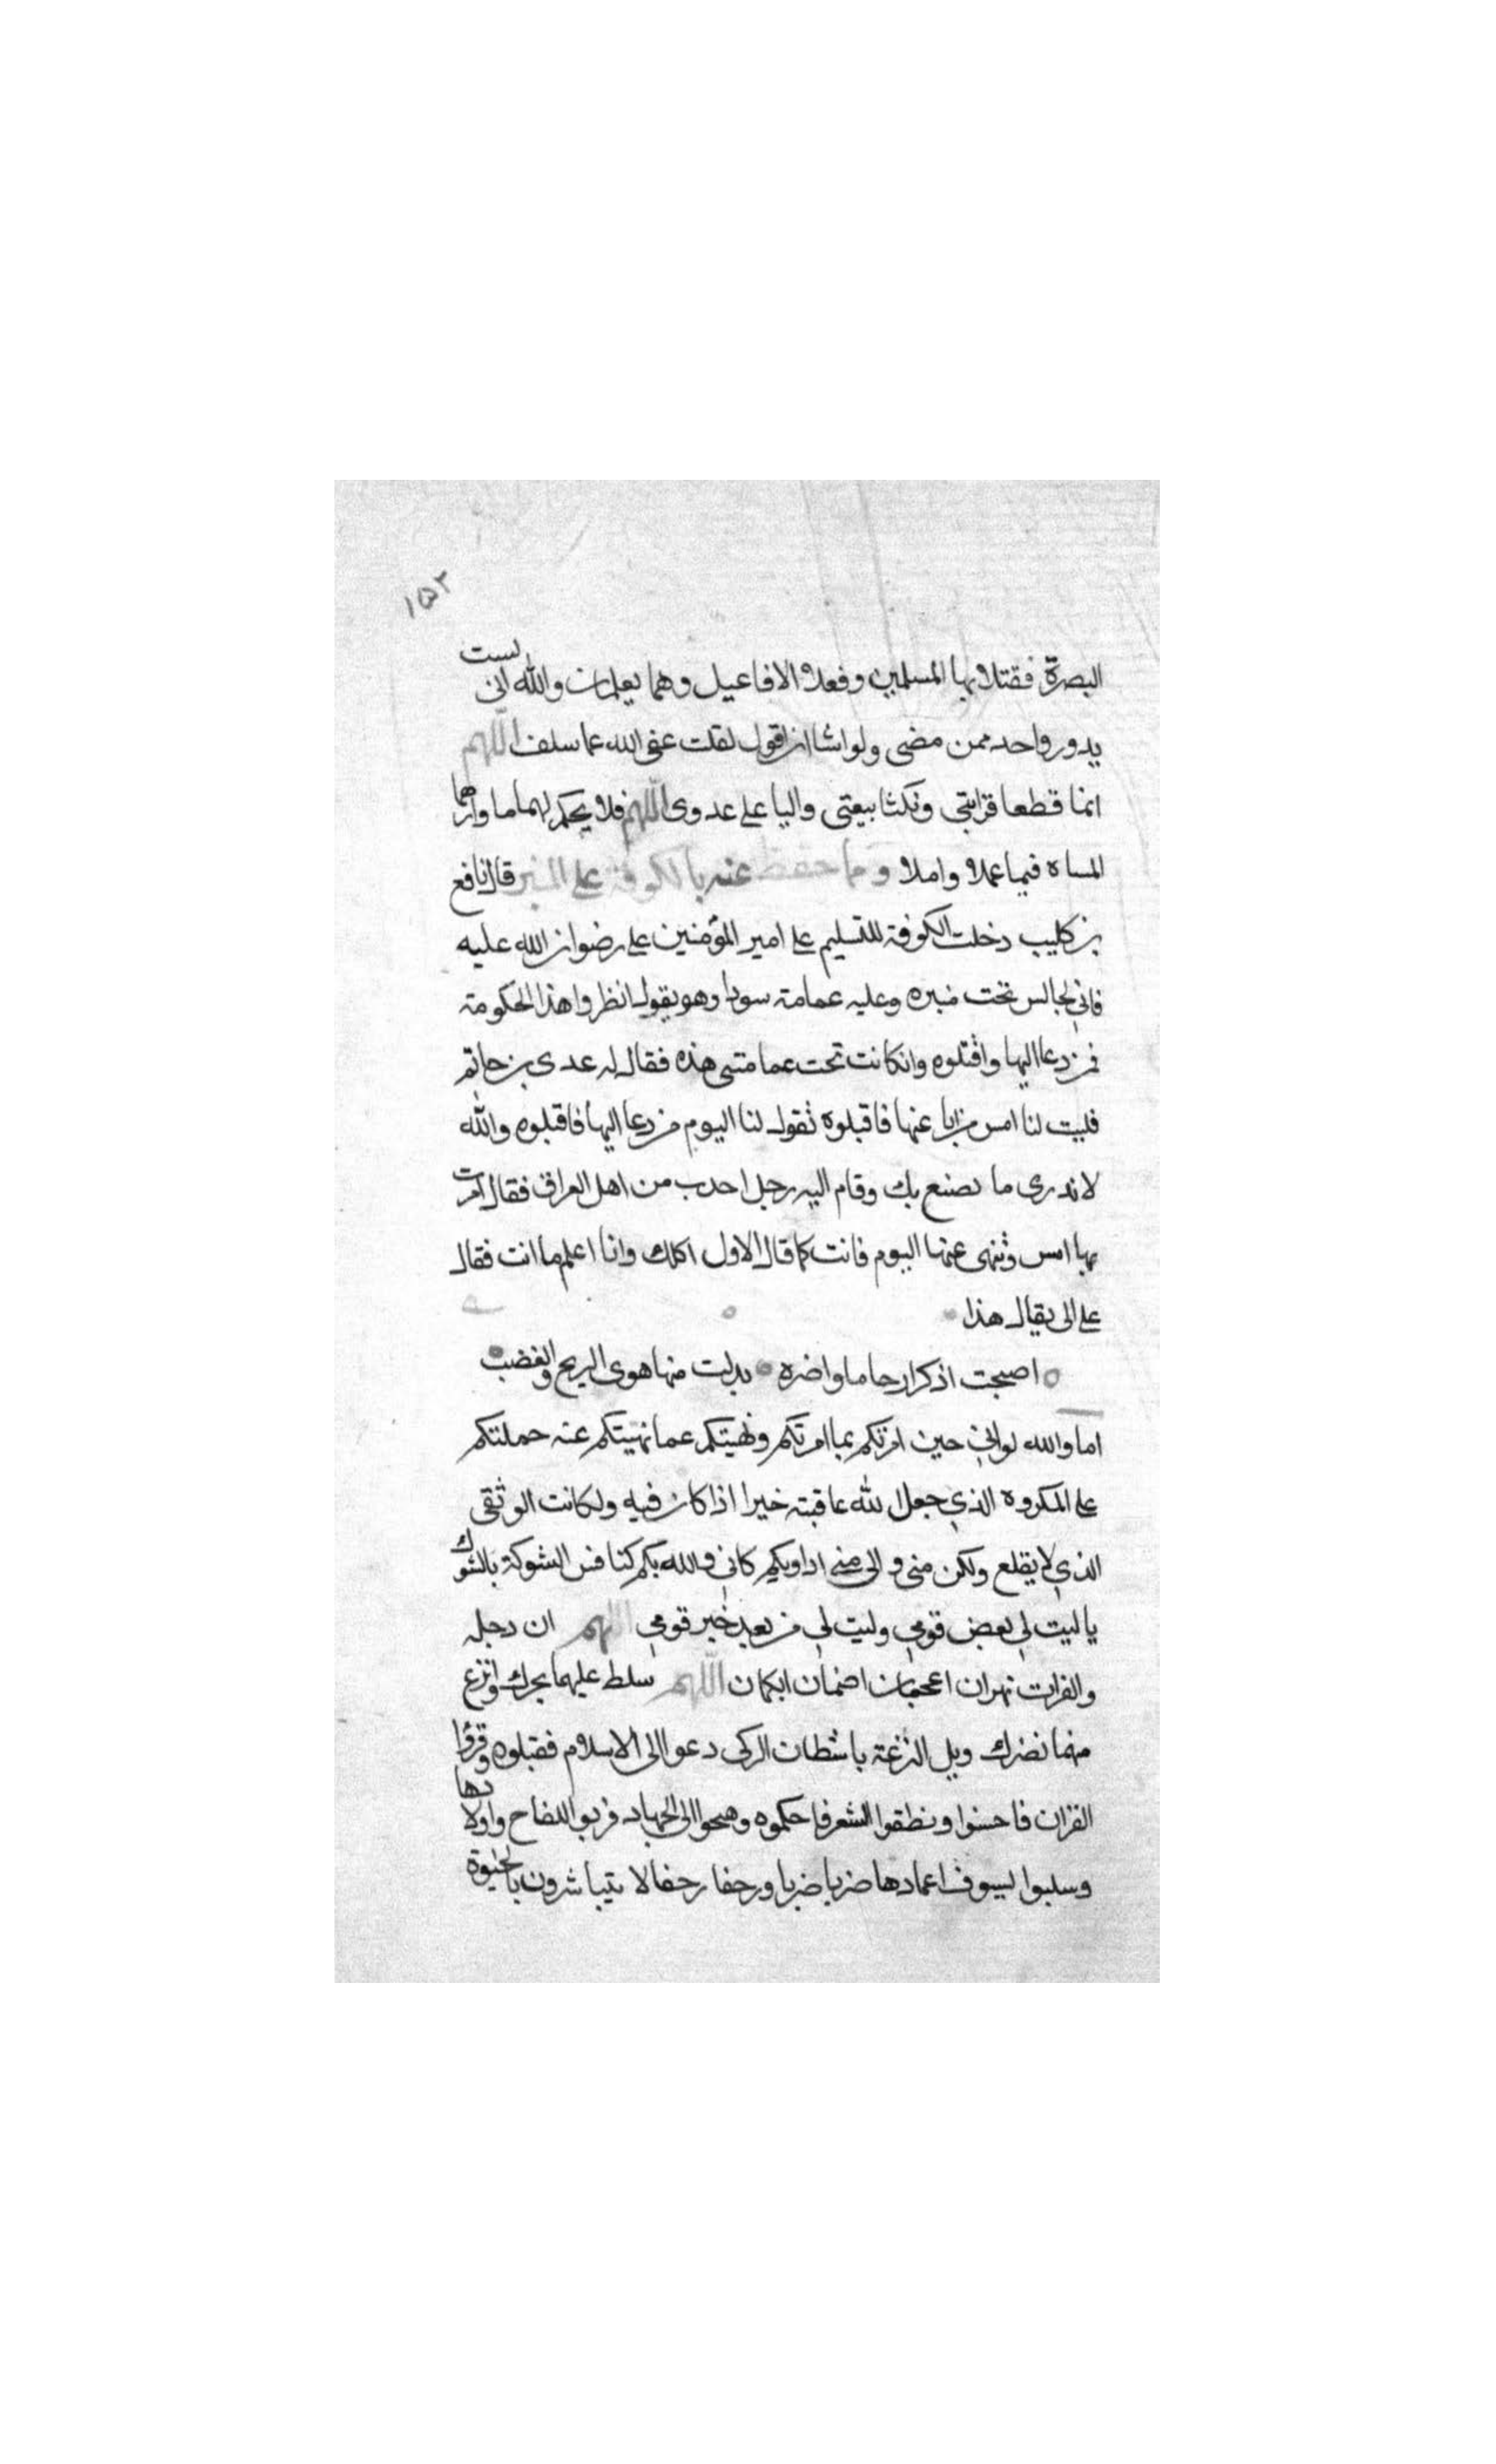 ١٥٢
البصرة فقتلا بها المسلمين وفعلا الافاعيل وهما يعلمان والله انى لست
بدون واحد ممن مضى ولو اشا ان اقول لقلت عفى الله عما سلف اللهم
انما قطعا قرابتى ونكثا بيعتى واليا على عدوى اللهم فلا يحكم لهما ما وارهما
المساه فيما عملا واملا وما حفظ عنه بالكوفة على المنبر قال نافع
بن كليب دخلت الكوفة للتسليم على امير المؤمنين على رضوان الله عليه
فانى لجالس تحت منبره وعليه عمامة سودا وهو يقول انظروا هذا الحكومة
فمن دعا اليها واقتلوه وانكانت تحت عمامتى هذه فقال له عدى بن حاتم
قلبت لنا امس من ابا عنها فاقبلوه تقول لنا اليوم من دعا اليها فاقبلوه والله
لا ندرى ما نصنع بك وقام اليه رجل احدب من اهل العراق فقال امرت
بها امس وتنهى عنها اليوم فانت كما قال الاول اكلك وانا اعلم ما انت فقال
على الى يقال هذا
اصبحت اذكر ارحاما واضره بدلت منها هوى الريح والغضب
اما والله لو انى حين امرتكم بما امرتكم ونهيتكم عما نهيتكم عنه حملتكم
على المكروه الذى جعل الله عاقبته خيرا اذا كان فيه ولكانت الوثقى
الذى لا يقلع ولكن منى والى منى اداويكم كانى والله بكم كنافس الشوكة بالشوك
يا ليت لى بعض قومى وليت لى من بعد خير قومى اللهم ان دجله
والفرات نهران اعجمان اصمان ابكمان اللهم سلط عليهما بحرك وانزع
منهما نصرك ويل للنزغة باشطان الركى دعوا الى الاسلام فقبلوه وقرؤا
القران فاحسنوا ونطقوا الشعر فاحكموه وهيجوا الى الجهاد فربوا اللضاح واولادها
وسلبوا السيوف اغمادها ضربا ضربا وزحفا زحفا لا يتباشرون بالحيوة